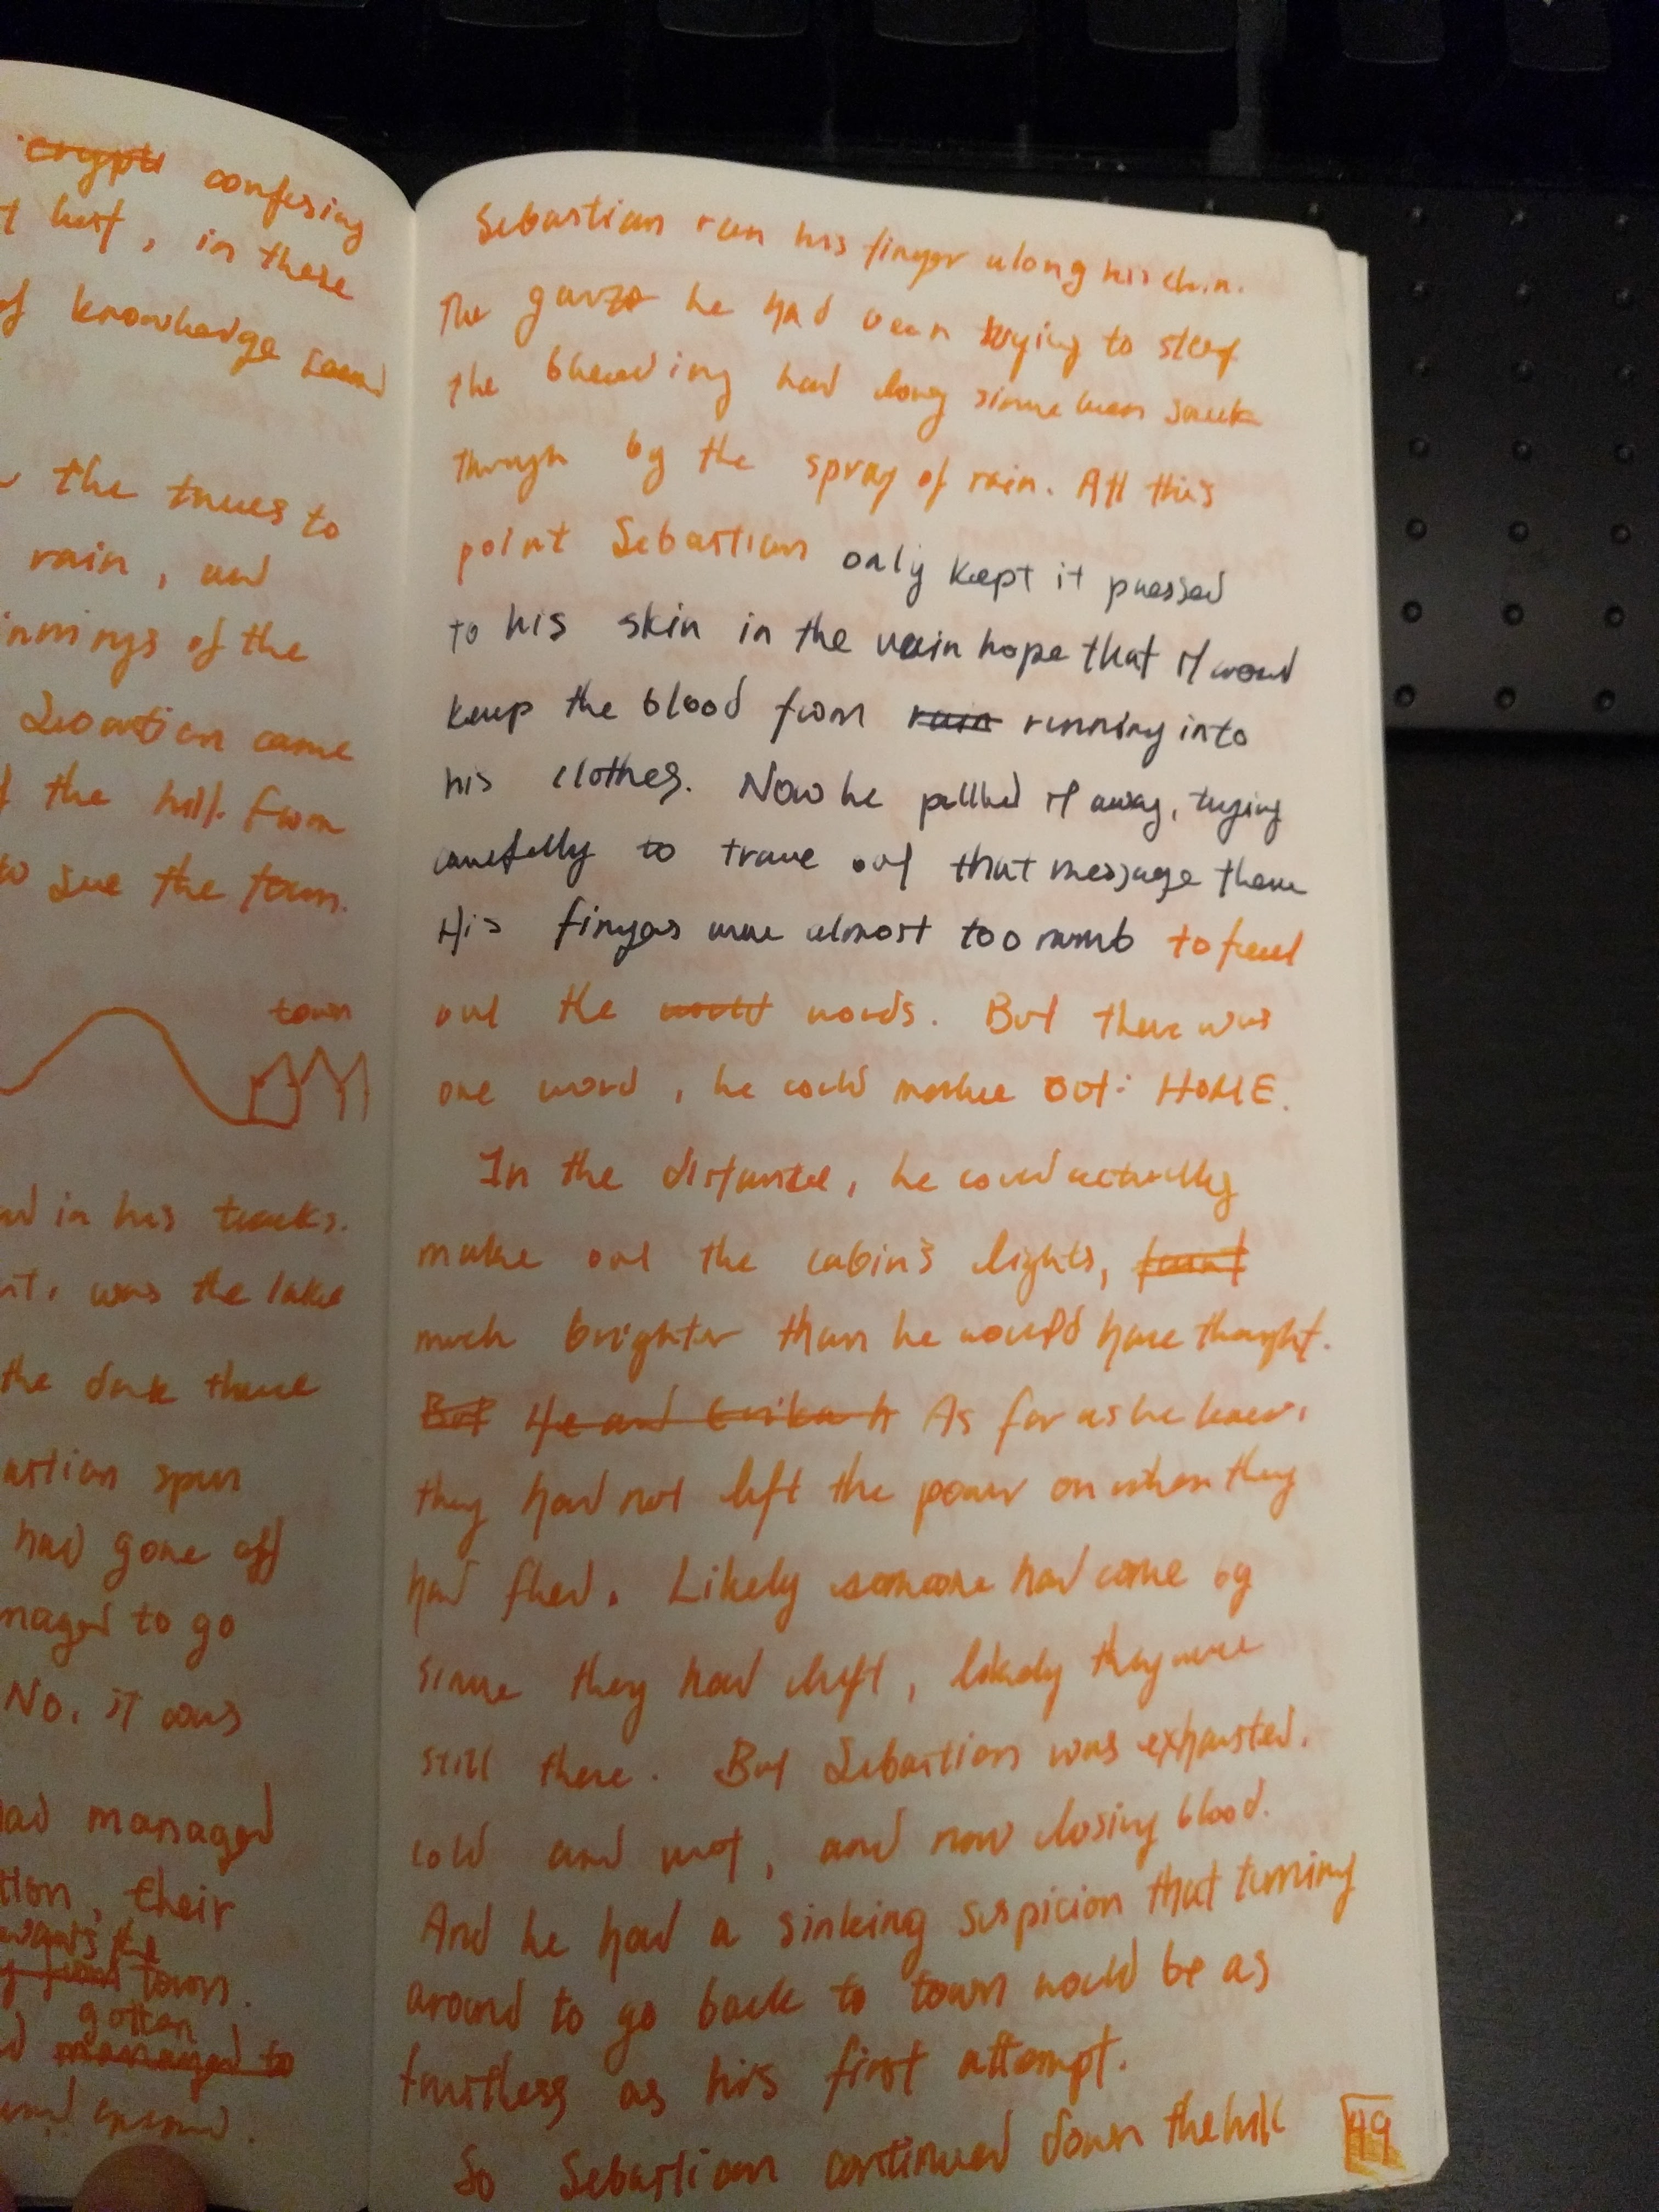 crypts confusing
in these
of knowledge
the trees to
rain, and
innings of the
Sebastian came
the hill from
to see the town.
town
in his tracks.
was the lake
the dark there
astian spun
had gone off
naged to go
No, it was
had managed
tion, their
town.
gotten
managed to
Sebastian ran his finger along his chin.
The gauze he had been trying to
the bleeding had long since been
through by the spray of rain. Att this
point Sebastian only kept it pressed
to his skin in the vain hope that it would
keep the blood from rain running into
his clothes. Now he pullled it away, trying
carefully to trace out that message there
His fingers were almost too numb to feel
out the words. But there was
one word, he could make out: HOME.
In the distance, he could actually
make out the cabin's lights,
much brighter than he would have thought.
But He and Erika h As far as he knew,
they had not left the power on when they
had fled. Likely someone had come by
since they had left, likely they were
still there. But Sebastian was exhausted,
cold and wet, and now losing blood.
And he had a sinking suspicion that turning
around to go back to town would be as
fruitless as his first attempt.
So Sebastian continued down the hill
49